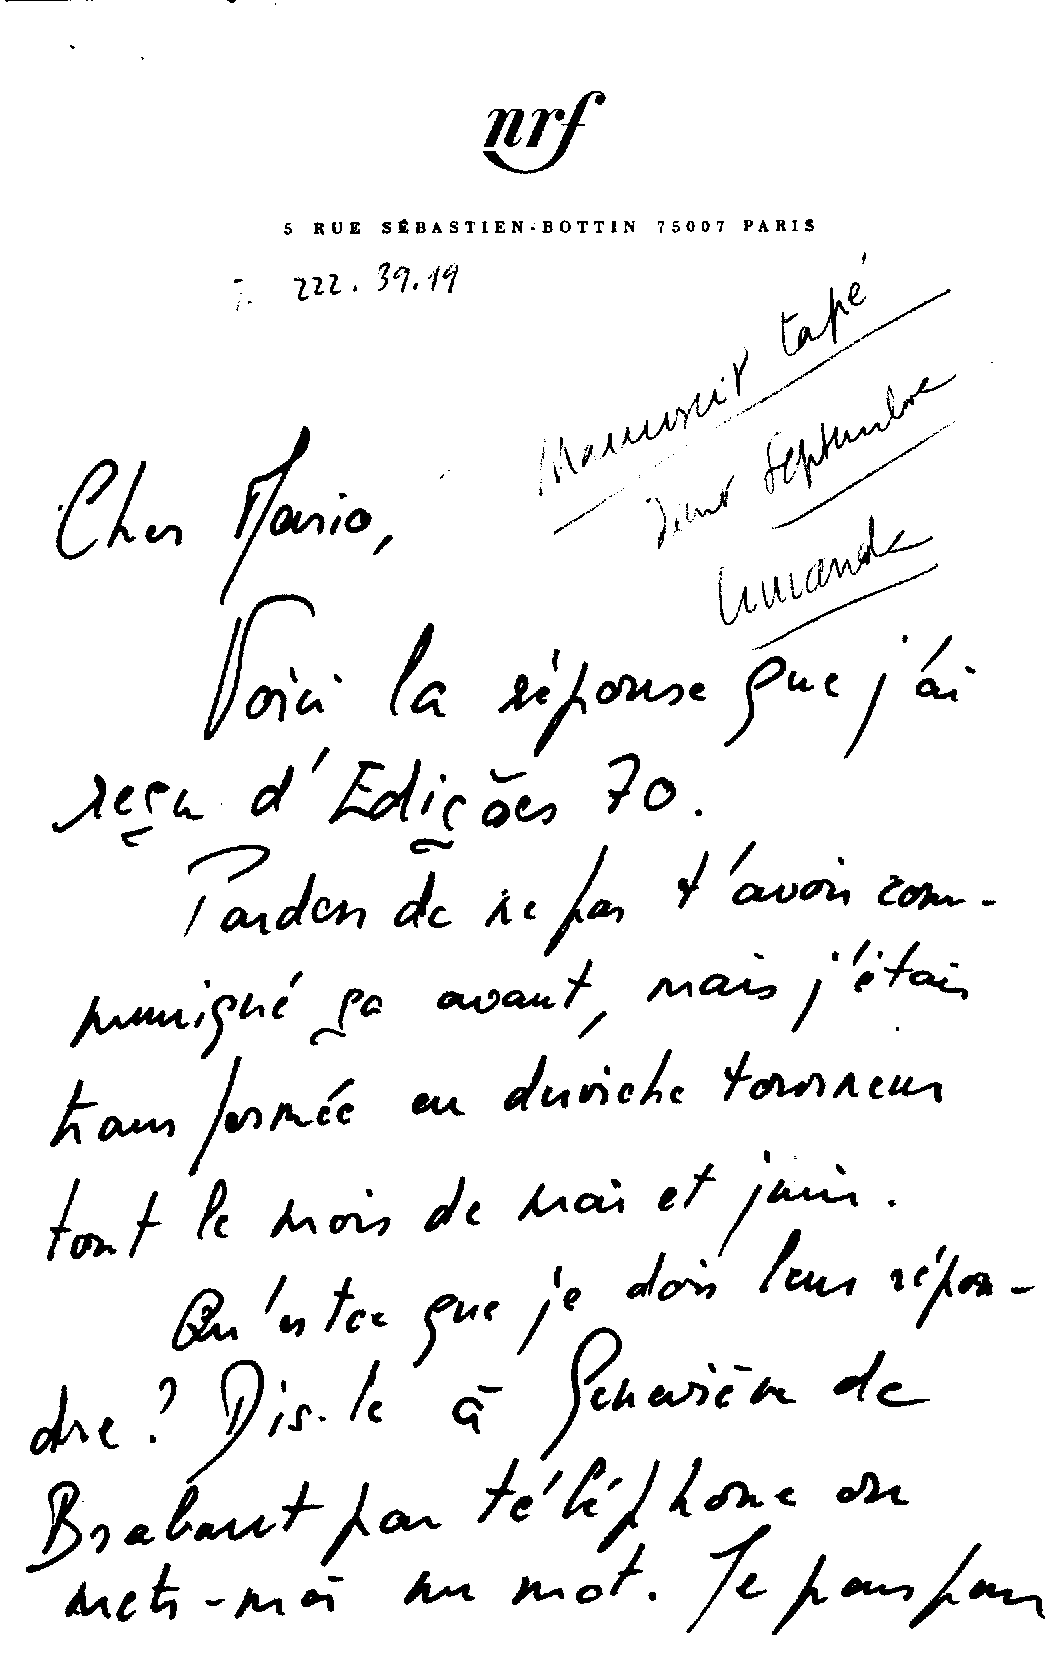 nrf
5 RUE SÉBASTIEN-BOTTIN 75007 PARIS
T. 222.39.19
Manuscrit tapé
Septembre
Cher Mario,
Voici la réponse que j'ai
reçu d'Edições 70.
Pardon de ne pas t'avoir com-
muniqué ça avant, mais j'étais
transformée en derviche tourneur
tout le mois de mai et juin.
Qu'est ce que je dois leur répon-
dre? Dis-le à Geneviève de
Brabant par téléphone ou
mets-moi un mot. Je pars pour